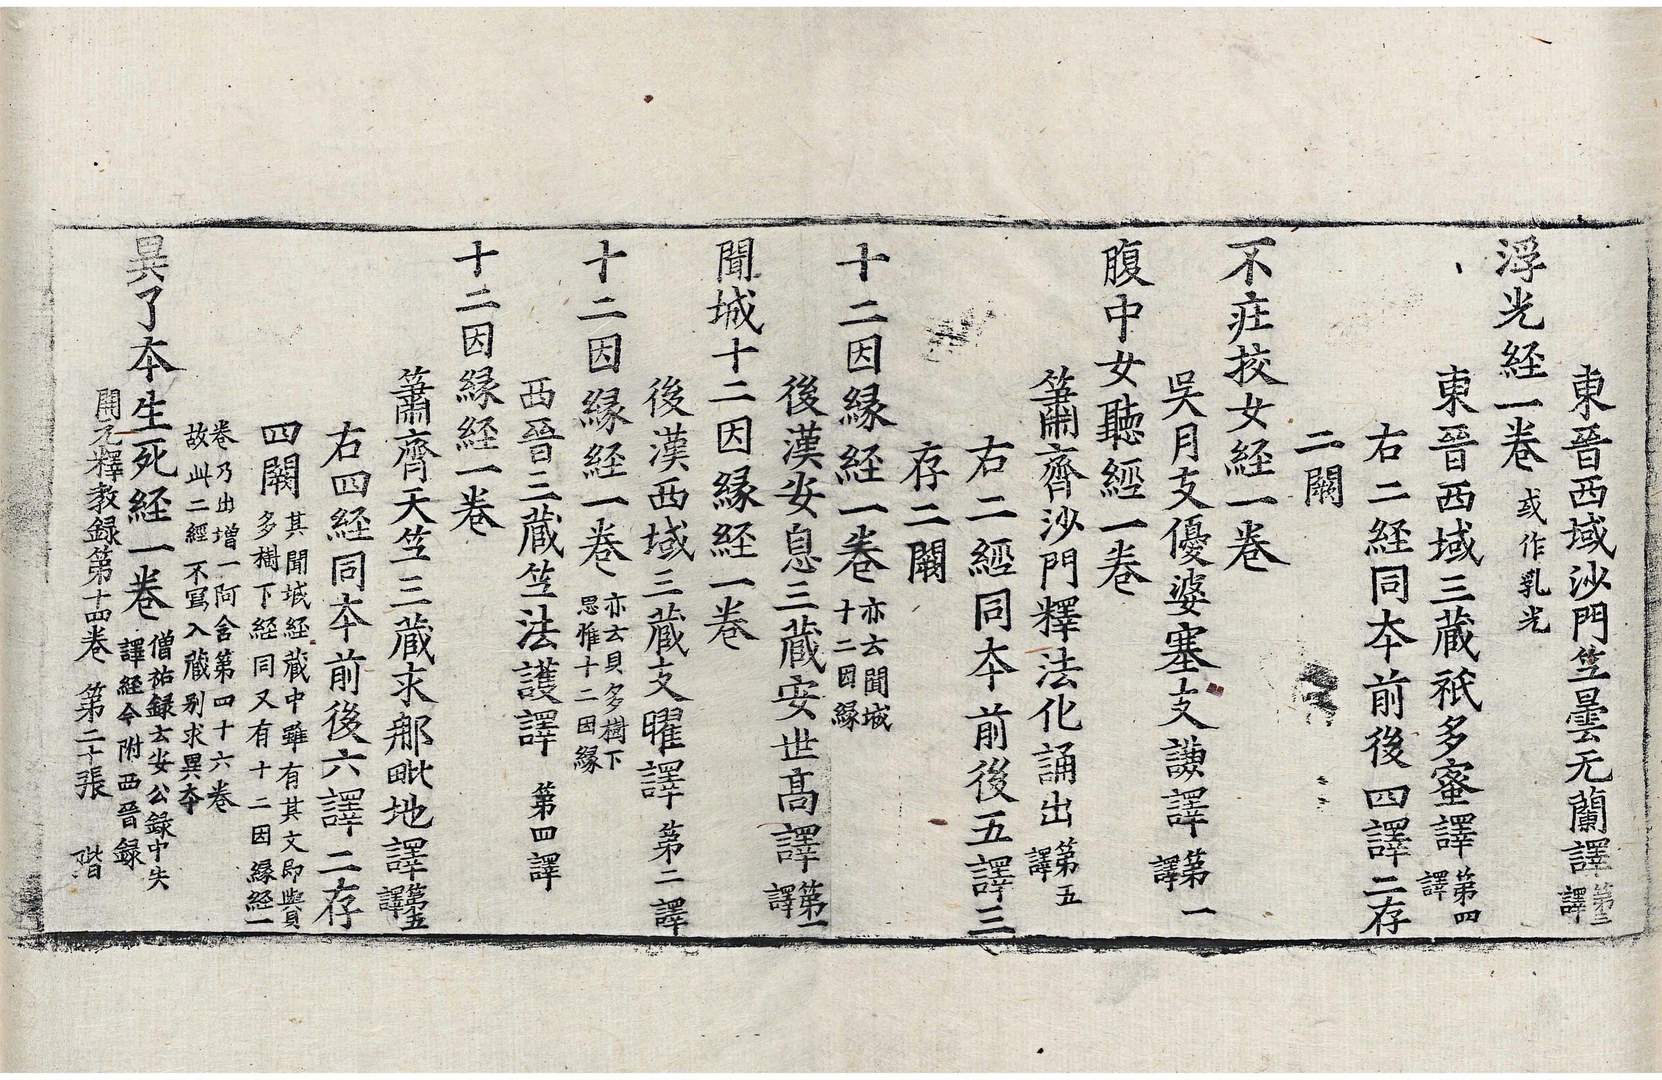 東晉西域沙門笁曇无蘭譯第三譯
浮光経一卷或作乳光
東晉西域三藏祇多蜜譯第四譯
右二経同夲前後四譯二存
二闕
不㽵挍女経一卷
吳月支優婆塞支謙譯第一譯
腹中女聽經一卷
簫齊沙門釋法化誦出第五譯
右二經同夲前後五譯三
存二闕
十二因縁経一卷亦云聞城十二因縁
後漢安息三藏安世髙譯第一譯
聞城十二因縁経一卷
後漢西域三藏支曜譯第二譯
十二因縁経一卷亦云貝多樹下思惟十二因縁
西晉三藏笁法護譯第四譯
十二因縁経一卷
簫齊天笁三藏求那毗地譯第五譯
右四経同夲前後六譯二存
四闕其聞城経藏中雖有其文即與貝
多樹下経同又有十二因縁経一
卷乃出增一阿含第四十六卷
故此二經不寫入藏别求異夲
異了夲生死経一卷僧祐録云安公録中失譯経今附西晉録
開元釋教録第十四卷 第二十張 階